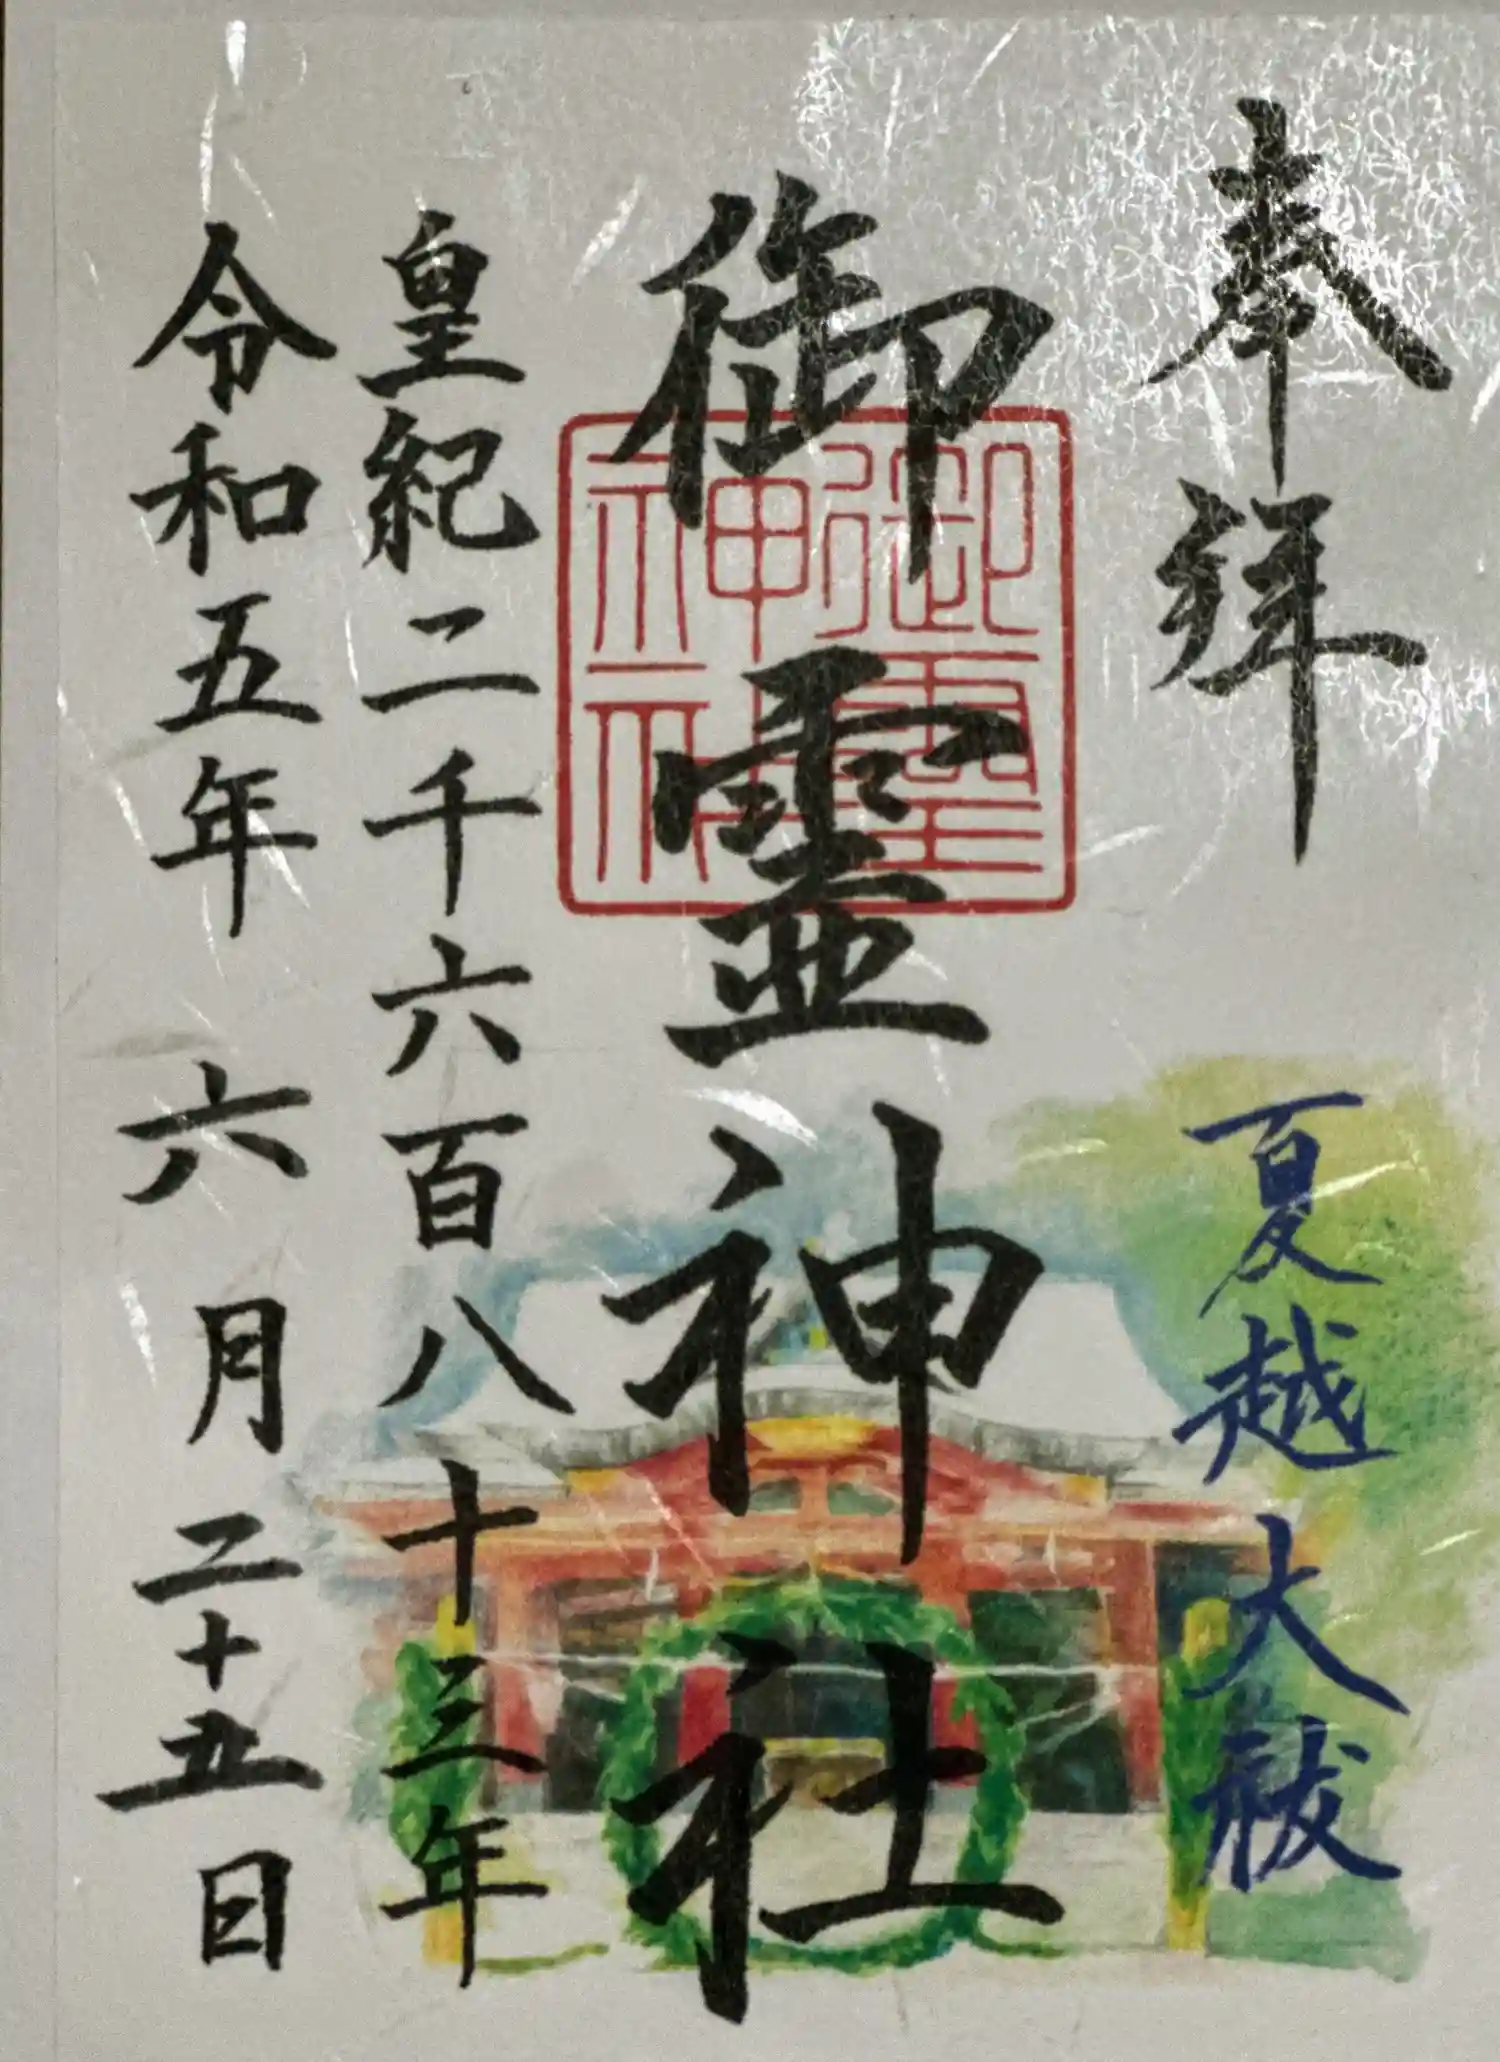 奉拝
夏越大祓
御霊神社
御霊神社
皇紀二千六百八十三年
令和五年六月二十五日